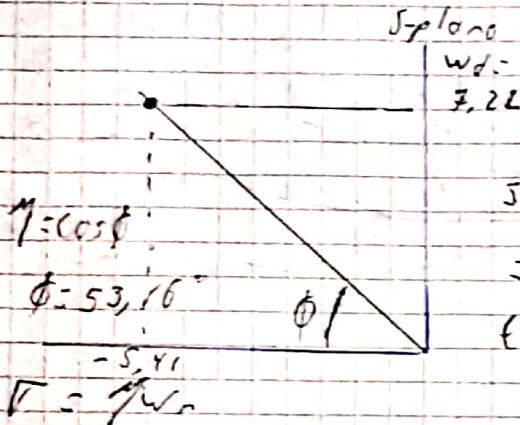 S-plano
Wd=
7,22
η=cosϕ
ϕ=53,16°
ϕ
-5,41
σ = ηWn